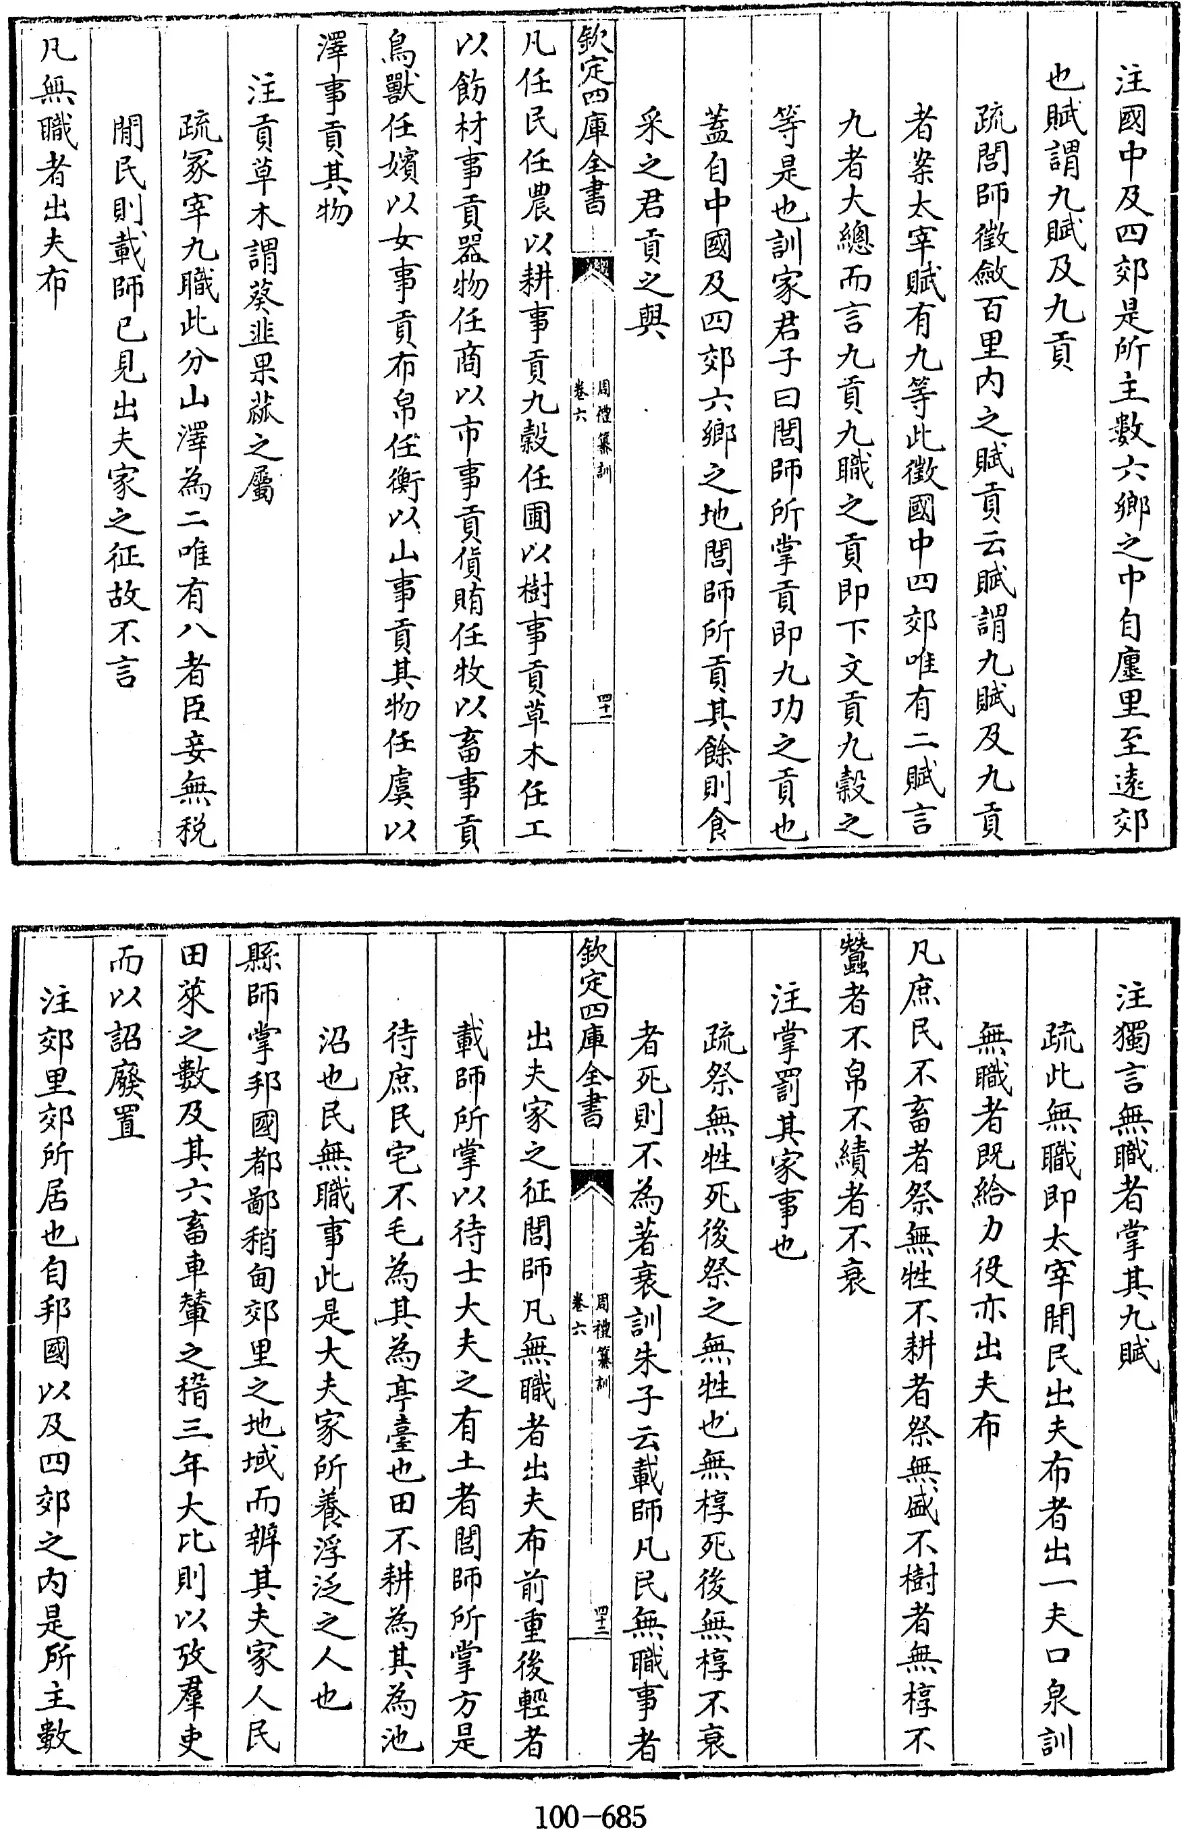 注國中及四郊是所主數六鄉之中自廛里至遠郊
也賦謂九賦及九貢
疏閭師徵斂百里内之賦貢云賦謂九賦及九貢
者案太宰賦有九等此徵國中四郊唯有二賦言
九者大總而言九貢九職之貢即下文貢九穀之
等是也訓家君子曰閭師所掌貢即九功之貢也
蓋自中國及四郊六鄉之地閭師所貢其餘則食
采之君貢之與
欽定四庫全書
周禮纂訓
卷六
四十二
凡任民任農以耕事貢九穀任圃以樹事貢草木任工
以飭材事貢器物任商以市事貢貨賄任牧以畜事貢
鳥獸任嬪以女事貢布帛任衡以山事貢其物任虞以
澤事貢其物
注貢草木謂葵韭果蓏之屬
疏冢宰九職此分山澤為二唯有八者臣妾無税
閒民則載師已見出夫家之征故不言
凡無職者出夫布
注獨言無職者掌其九賦
疏此無職即太宰閒民出夫布者出一夫口泉訓
無職者既給力役亦出夫布
凡庶民不畜者祭無牲不耕者祭無盛不樹者無椁不
蠶者不帛不績者不衰
注掌罰其家事也
疏祭無牲死後祭之無牲也無椁死後無椁不衰
者死則不為著衰訓朱子云載師凡民無職事者
欽定四庫全書
周禮纂訓
卷六
四十三
出夫家之征閭師凡無職者出夫布前重後輕者
載師所掌以待士大夫之有土者閭師所掌方是
待庶民宅不毛為其為亭臺也田不耕為其為池
沼也民無職事此是大夫家所養浮泛之人也
縣師掌邦國都鄙稍甸郊里之地域而辨其夫家人民
田萊之數及其六畜車輦之稽三年大比則以攷羣吏
而以詔廢置
注郊里郊所居也自邦國以及四郊之内是所主數
100-685